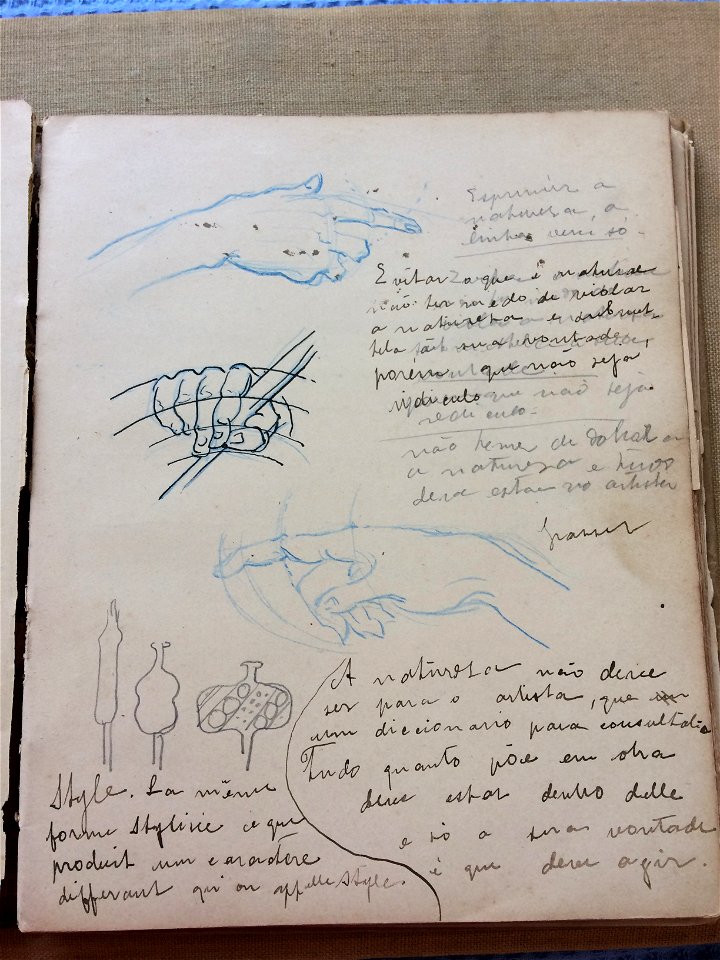 Esprimir a
natureza, a
linha vem só.
Evitar o que é natural
não ter medo de violar
a natureza e
sua vontade,
porém que não seja
ridiculo
que não seja
rediculo.
não temer de dobrar a
a natureza e tudo
deve estar no artista
Grasset
A natureza não deve
ser para o artista, que
um diccionario para consultal-a
Tudo quanto põe em obra
deve estar dentro delle
e só a sua vontade
é que deve agir.
Style. La même
forme stylisée ce que
produit un caractère
differant qu'on appelle style.